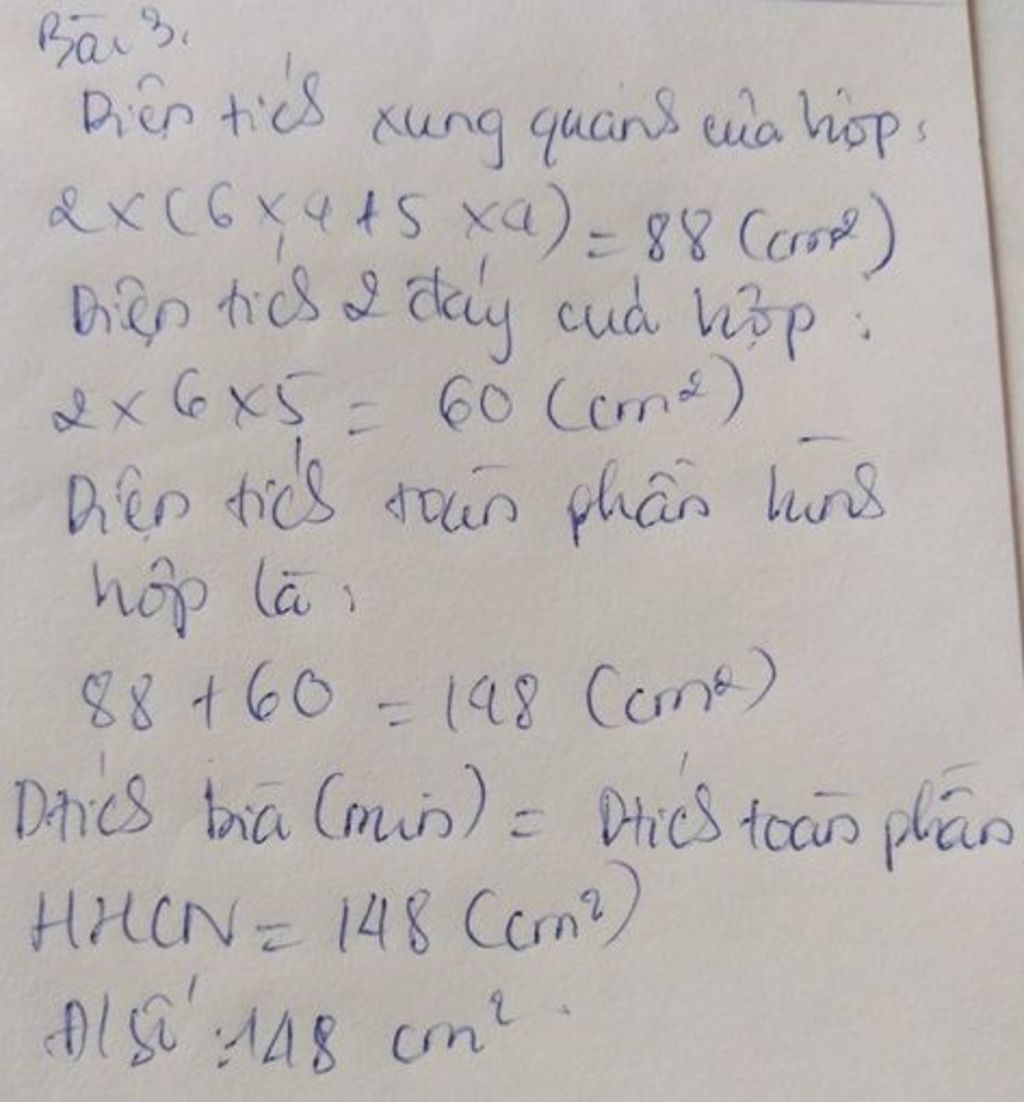 Bài 3.
Diện tích xung quanh của hộp:
2 x (6 x 4 + 5 x 4) = 88 (cm²)
Diện tích 2 đáy của hộp:
2 x 6 x 5 = 60 (cm²)
Diện tích toàn phần hình
hộp là:
88 + 60 = 148 (cm²)
Dtích bìa (min) = Dtích toàn phần
HHCN = 148 (cm²)
Đ/số: 148 cm².